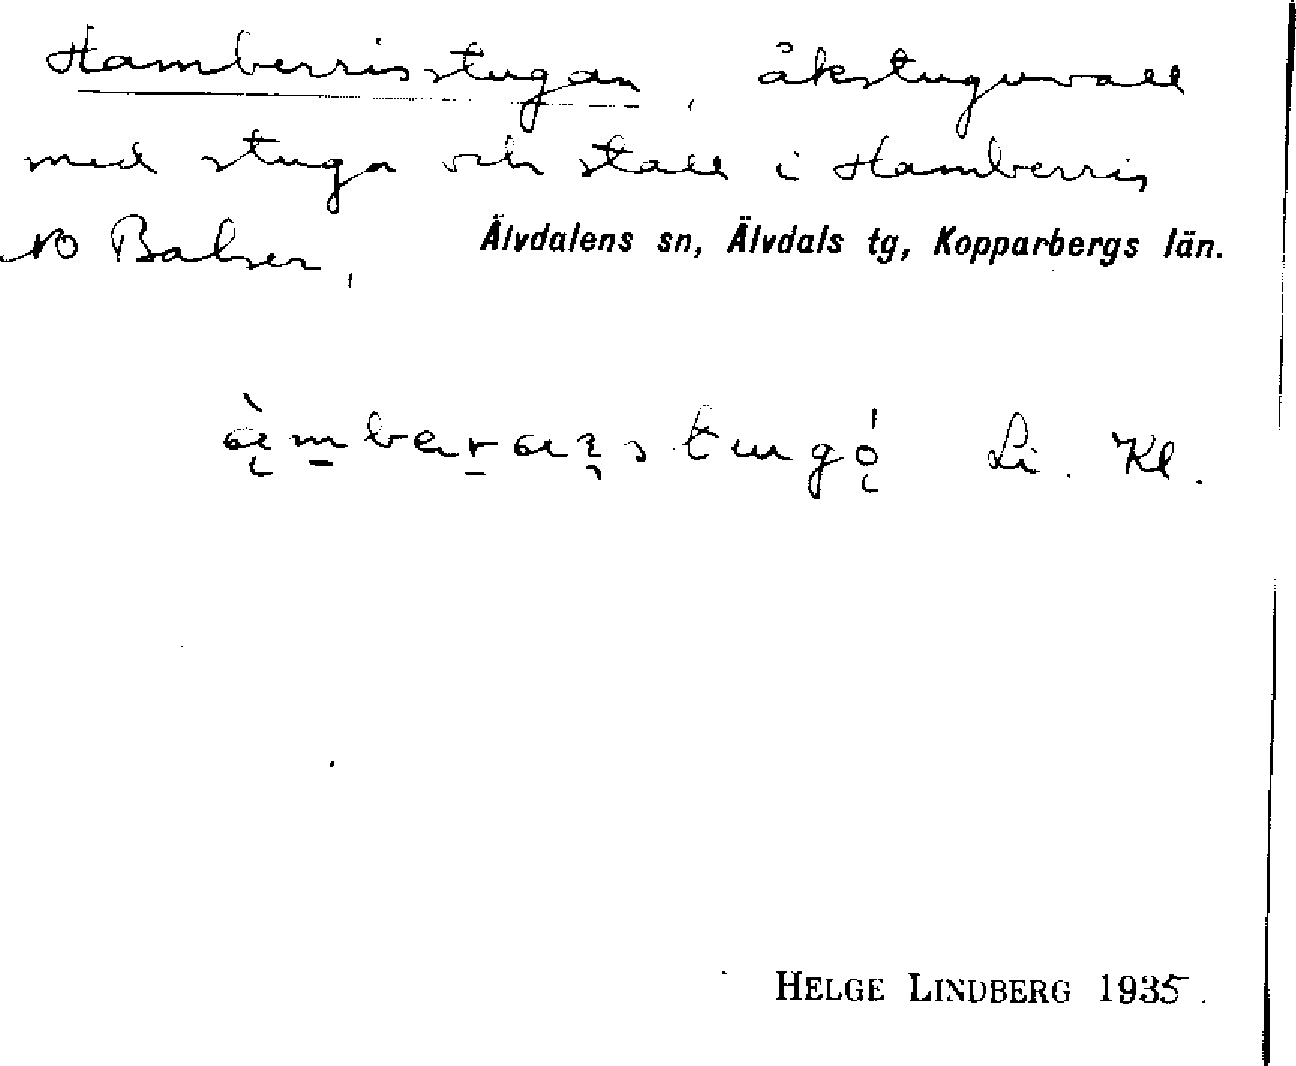 Hamberrisstugan, åkstuguvall
med stuga och stall i Hamberris
NO Balser, Älvdalens sn, Älvdals tg, Kopparbergs län.
Li. Kl.
HELGE LINDBERG 1935.